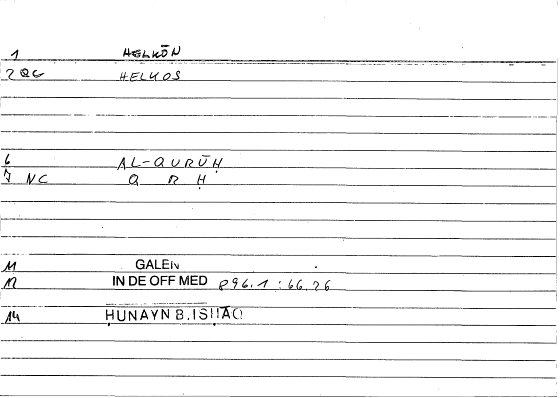 1 HELKŌN
2 QG HELKOS
6 AL-QURŪḤ
7 NC Q R Ḥ
11 GALEN
12 IN DE OFF MED 896.1 : 66.26
14 ḤUNAYN B. ISḤĀQ